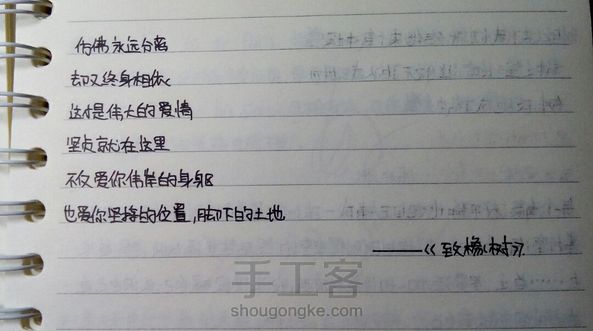 仿佛永远分离
却又终身相依
这才是伟大的爱情
坚贞就在这里
不仅爱你伟岸的身躯
也爱你坚持的位置,脚下的土地
——《致橡树》.
手工客
shougongke.com